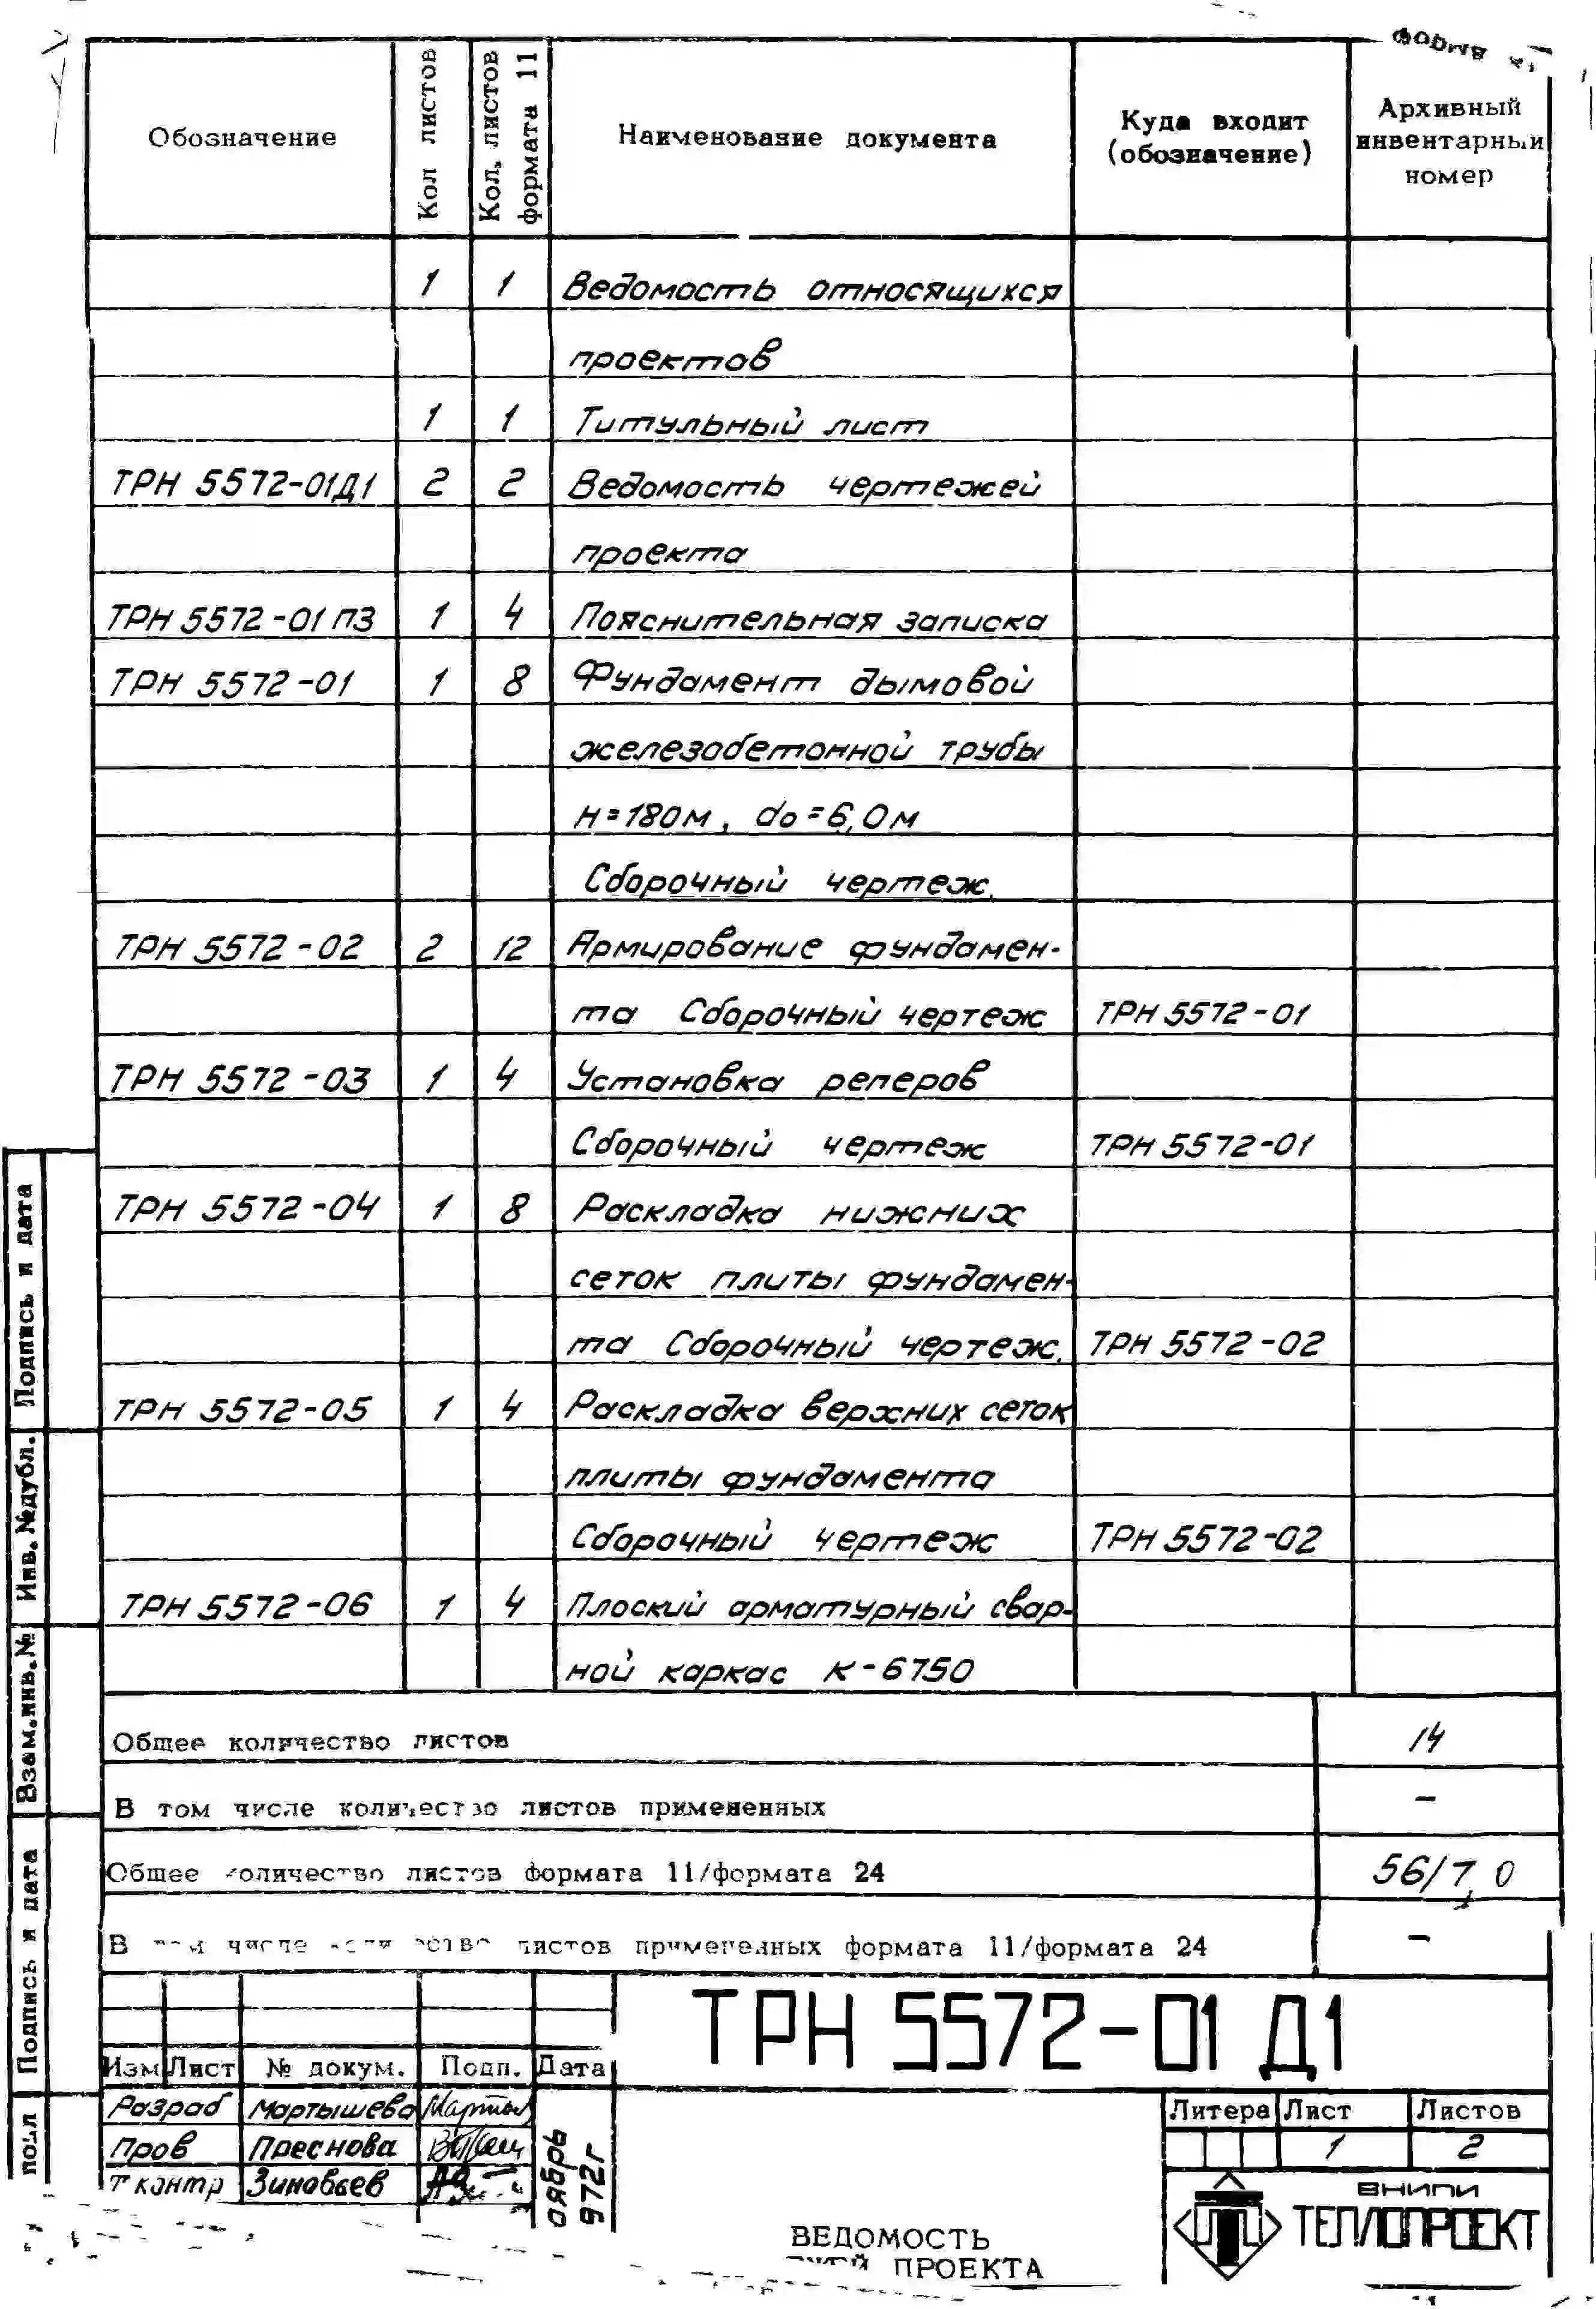 Обозначение
Кол листов
Кол. листов
формата 11
Наименование документа
Куда входит
(обозначение)
Архивный
инвентарный
номер
1 1 Ведомость относящихся
проектов
1 1 Титульный лист
ТРН 5572-01Д1 2 2 Ведомость чертежей
проекта
ТРН 5572-01 ПЗ 1 4 Пояснительная записка
ТРН 5572-01 1 8 Фундамент дымовой
железобетонной трубы
Н=180м, do=6,0м
Сборочный чертеж.
ТРН 5572-02 2 12 Армирование фундамен-
та Сборочный чертеж ТРН 5572-01
ТРН 5572-03 1 4 Установка реперов
Сборочный чертеж ТРН 5572-01
ТРН 5572-04 1 8 Раскладка нижних
сеток плиты фундамен-
та Сборочный чертеж. ТРН 5572-02
ТРН 5572-05 1 4 Раскладка верхних сеток
плиты фундамента
Сборочный чертеж ТРН 5572-02
ТРН 5572-06 1 4 Плоский арматурный свар-
ной каркас К-6750
Общее количество листов 14
В том числе количество листов примененных -
Общее количество листов формата 11/формата 24 56/7,0
В том числе количество листов примененных формата 11/формата 24 -
Подпись и дата
Инв. №дубл.
Взам.инв.№
Подпись и дата
подл
ТРН 5572-01 Д1
Изм Лист № докум. Подп. Дата
Разраб Мартышева
Пров Преснова
Т контр Зиновьев
оябрь
972г
Литера Лист Листов
1 2
ВНИПИ
ТЕПЛОПРОЕКТ
ВЕДОМОСТЬ
ПРОЕКТА